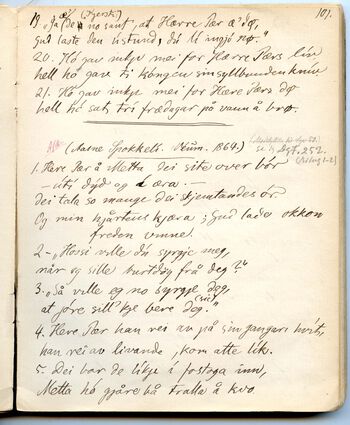 107.
19. „Ja (Kjersti)
no sant, at Herre Pær æ dø,
Gud laste den ustund, du
20. Hó gav inkje mei for Herre Pærs liv
hell hó gav ti kongen sin syllbunden kniv
21. Hó gav inkje mei for Herre Pærs dø
hell hó sat tri frædagar på vann å brø.
(Aasne Spokkeli. Aum. 1864.)
se Dgf. 252.
1. Here Pær å Metta dei site over bór
— uti dyd og æra. —
dei tala so mange dei skjemtande ór.
Og min hjærtens kjæra; Gud lade okkon
freden vinne.
2 — „Hossi ville du syrgje meg,
når eg sille burtdøy frå deg?"
3. „Så ville eg no syrgje deg,
at jore sill' kje bere deg."
4. Here Pær han rei av på sin gangari kvit,
han rei av livande, kom atte lik.
5. Dei bar de likje i fostoga inn,
Metta hó gjåre bå tralla å kvo.